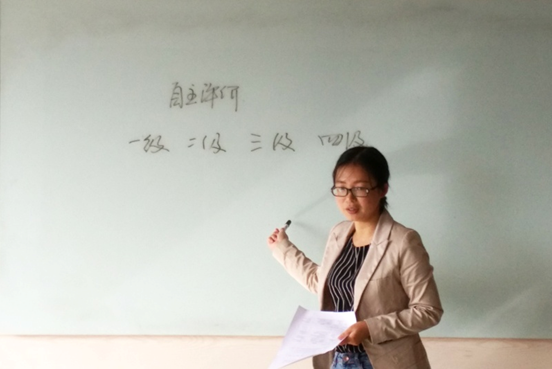 自主评价
一级 二级 三级 四级